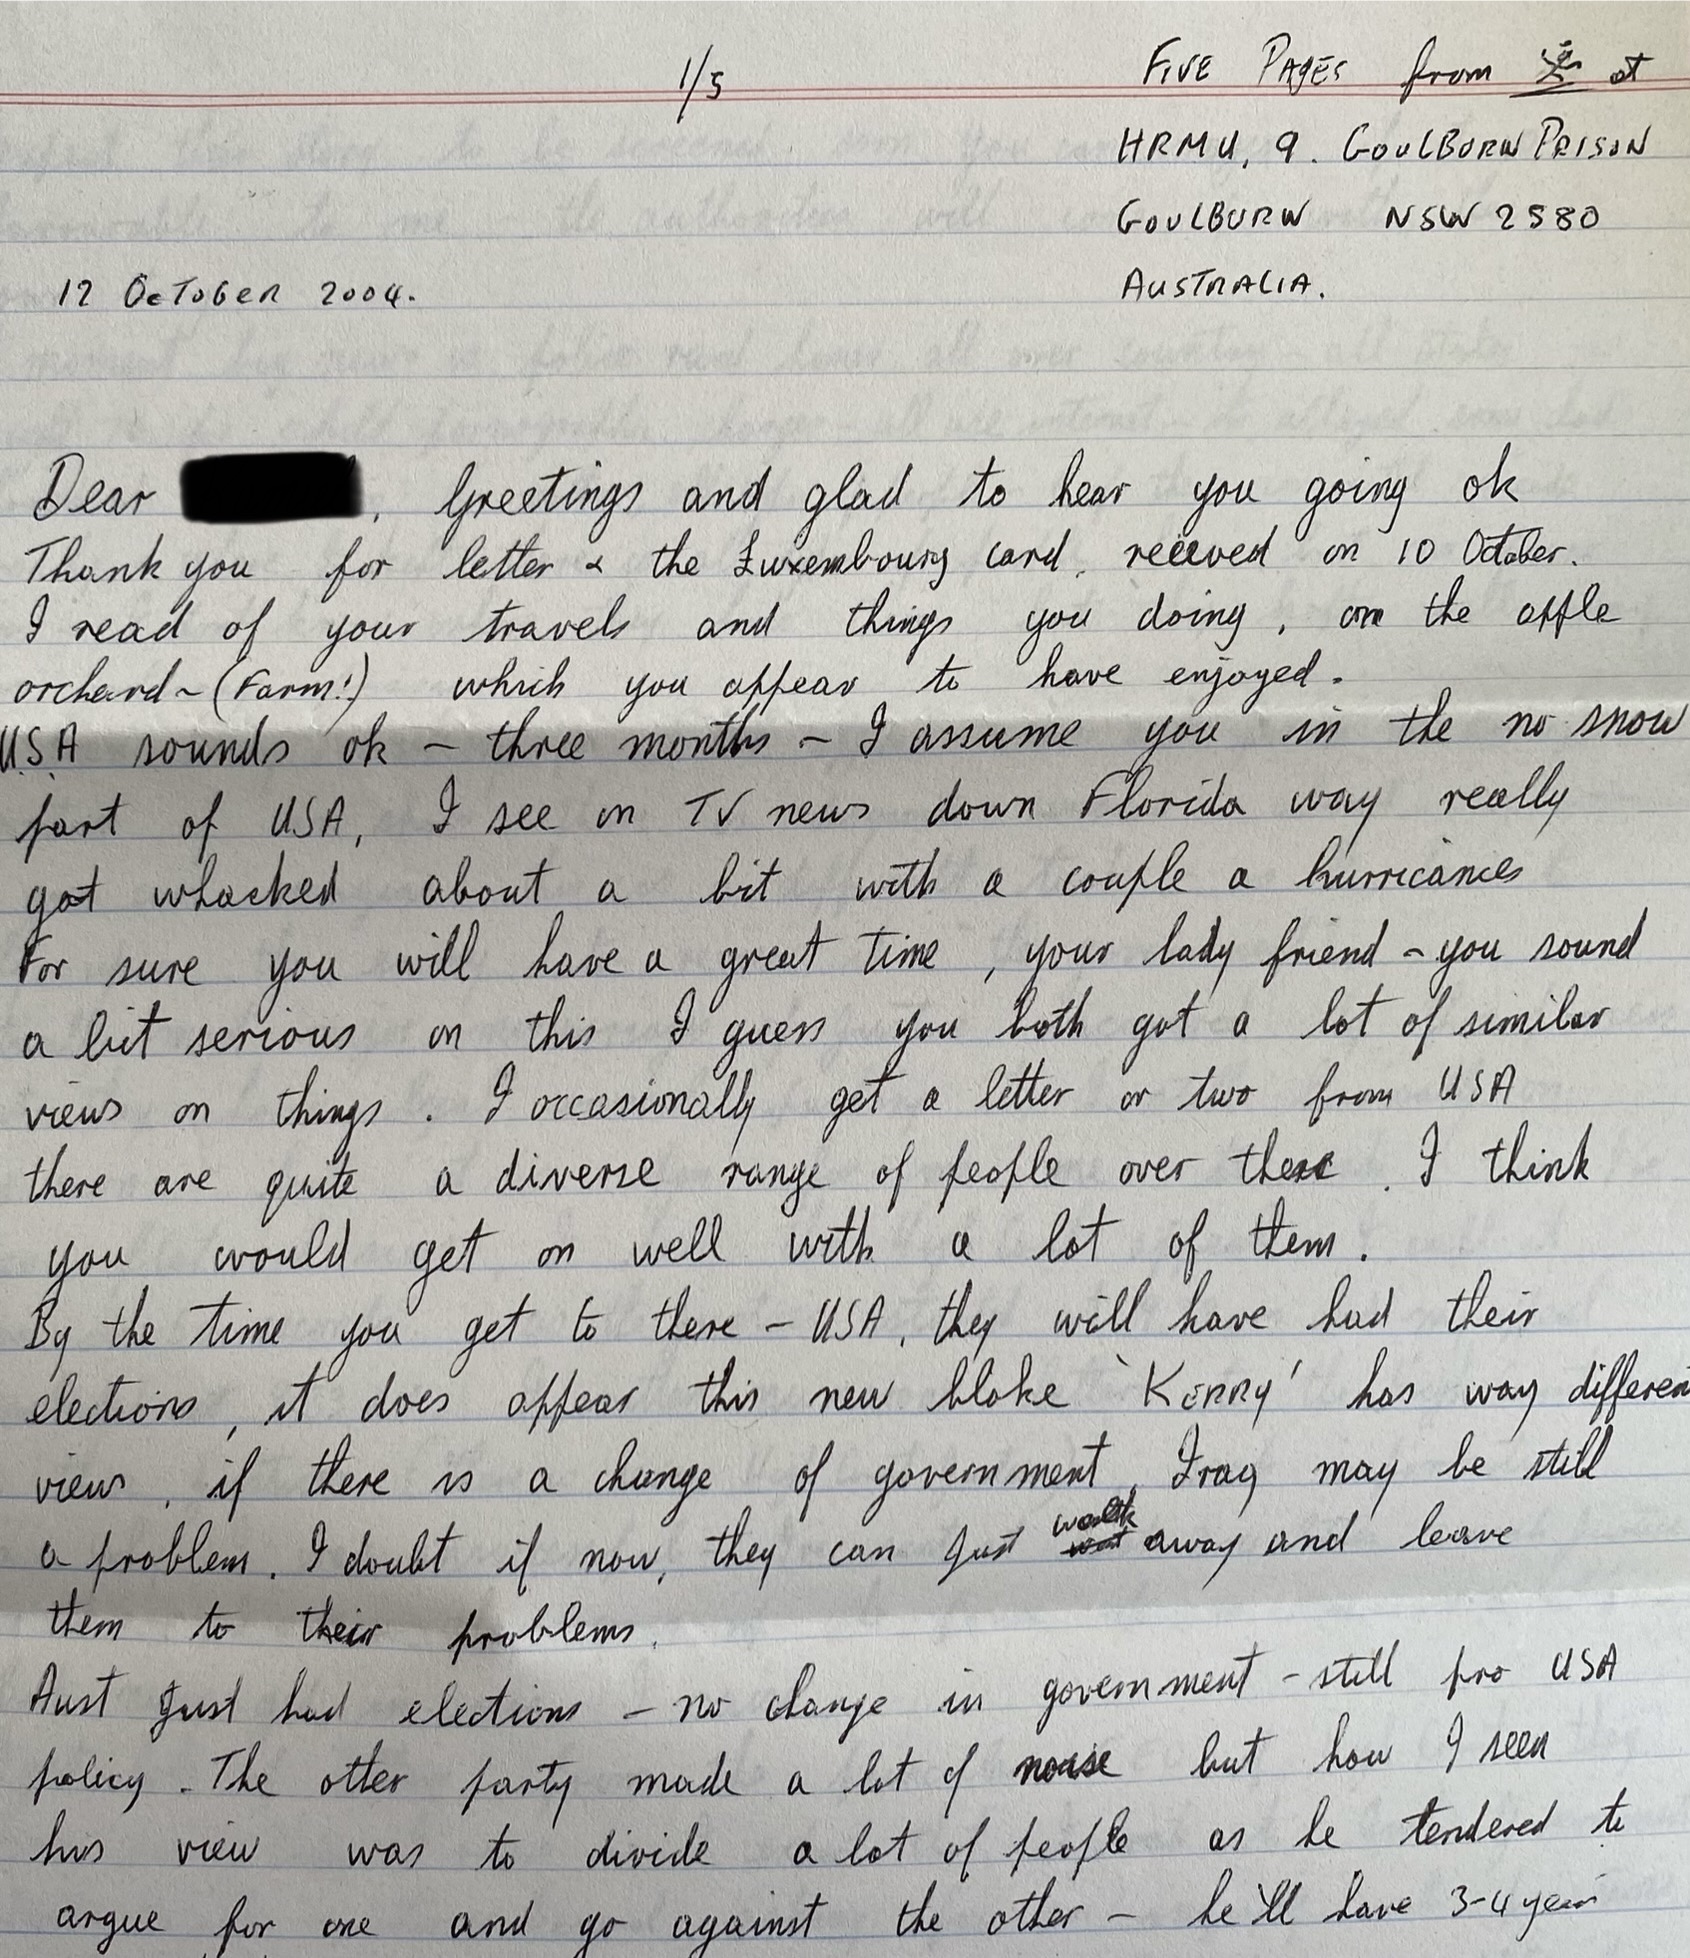 1/5
FIVE PAGES from at
HRMU, 9. GOULBURN PRISON
GOULBURN NSW 2580
12 OCTOBER 2004.
AUSTRALIA.
Dear , Greetings and glad to hear you going ok
Thank you for letter & the Luxembourg card, recieved on 10 October.
I read of your travels and things you doing, on the apple
orchard ~ (Farm!) which you appear to have enjoyed.
U.S.A sounds ok - three months - I assume you in the no snow
part of USA, I see on TV news down Florida way really
got whacked about a bit with a couple a hurricanes
For sure you will have a great time, your lady friend - you sound
a bit serious on this I guess you both got a lot of similar
views on things. I occasionally get a letter or two from USA
there are quite a diverse range of people over there. I think
you would get on well with a lot of them.
By the time you get to there - USA, they will have had their
elections, it does appear this new bloke 'KERRY' has way differen
views, if there is a change of government, Iraq may be still
a problem. I doubt if now, they can just walk away and leave
them to their problems.
Aust just had elections - no change in government - still pro USA
policy. The other party made a lot of noise but how I seen
his view was to divide a lot of people as he tendered to
argue for one and go against the other - he'll have 3-4 years